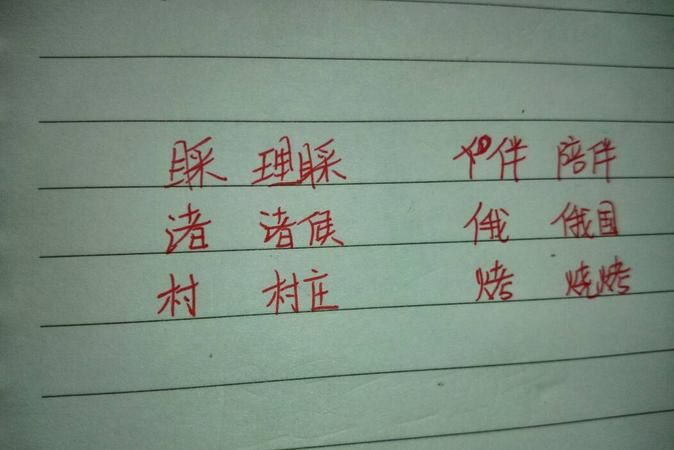 睬 理睬 伴 陪伴
渚 渚侯 俄 俄国
村 村庄 烤 烧烤